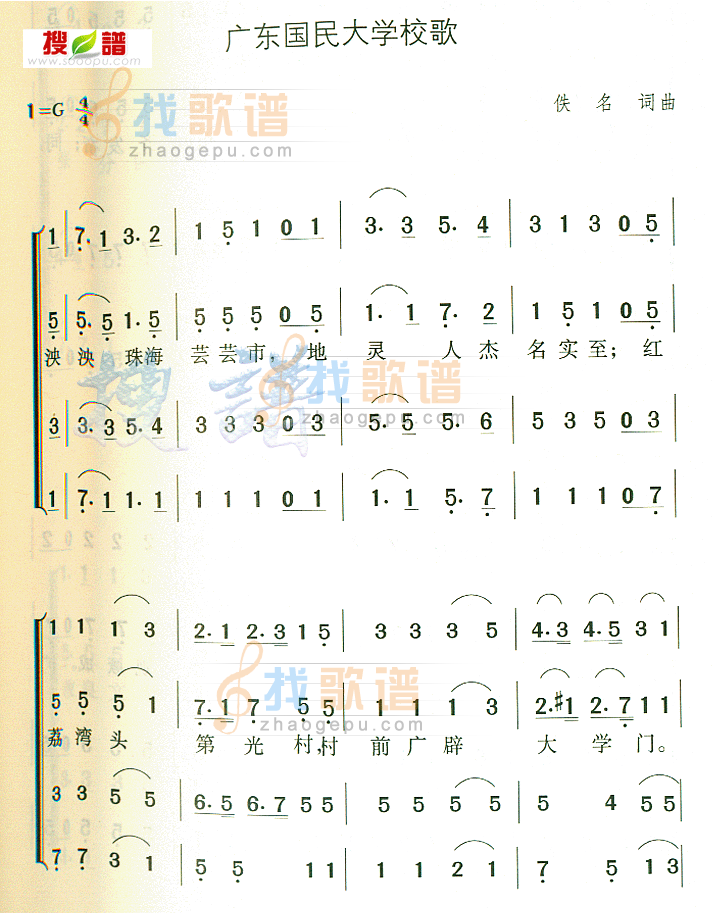 搜譜
www.sooopu.com
广东国民大学校歌
1=G 4/4
佚 名 词曲
找歌谱
zhaogepu.com
1 | 7· 1 3· 2 | 1 5 1 0 1 | 3· 3 5· 4 | 3 1 3 0 5 |
5 | 5· 5 1· 5 | 5 5 5 0 5 | 1· 1 7· 2 | 1 5 1 0 5 |
泱 泱 珠海 芸芸市，地 灵 人杰 名实至；红
搜譜 找歌谱
zhaogepu.com
3 | 3· 3 5· 4 | 3 3 3 0 3 | 5· 5 5· 6 | 5 3 5 0 3 |
1 | 7· 1 1· 1 | 1 1 1 0 1 | 1· 1 5· 7 | 1 1 1 0 7 |
1 1 1 3 | 2· 1 2· 3 1 5 | 3 3 3 5 | 4· 3 4· 5 3 1 |
找歌谱
zhaogepu.com
5 5 5 1 | 7· 1 7 5 5 | 1 1 1 3 | 2· #1 2· 7 1 1 |
荔 湾 头 第 光 村，村 前 广 辟 大 学 门。
3 3 5 5 | 6· 5 6· 7 5 5 | 5 5 5 5 | 5 4 5 5 |
找歌谱
zhaogepu.com
7 7 3 1 | 5 5 1 1 | 1 1 2 1 | 7 5 1 3 |